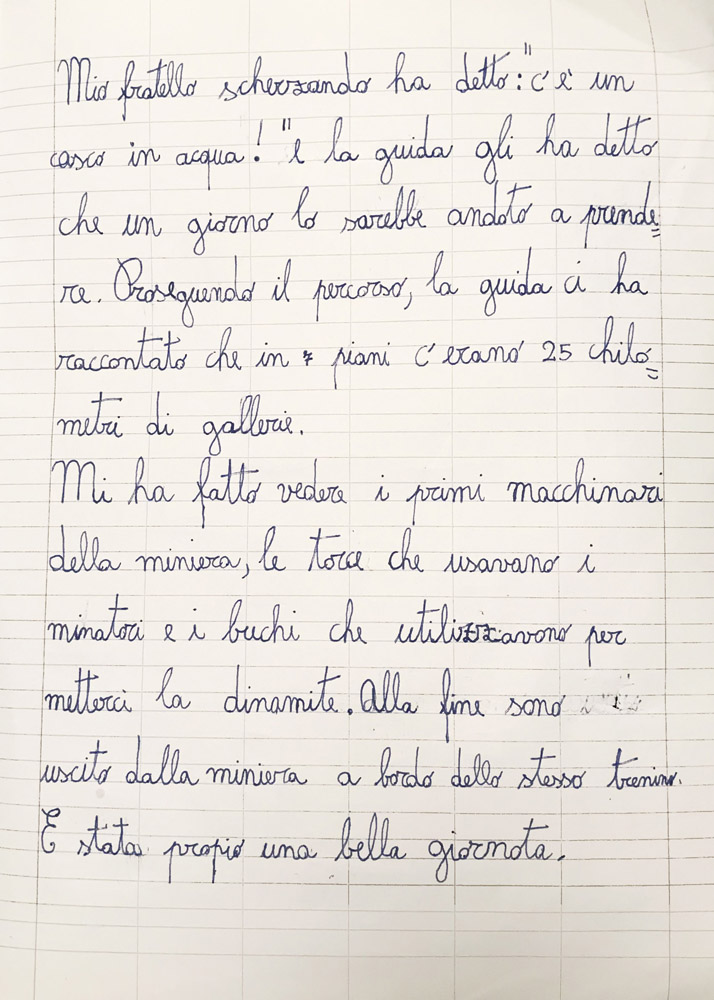 Mio fratello scherzando ha detto: "c'è un
casco in acqua!" e la guida gli ha detto
che un giorno lo sarebbe andato a prende=
re. Proseguendo il percorso, la guida ci ha
raccontato che in 7 piani c'erano 25 chilo=
metri di gallerie.
Mi ha fatto vedere i primi macchinari
della miniera, le torce che usavano i
minatori e i buchi che utilizzavono per
metterci la dinamite. Alla fine sono
uscito dalla miniera a bordo dello stesso trenino.
E stata propio una bella giornata.